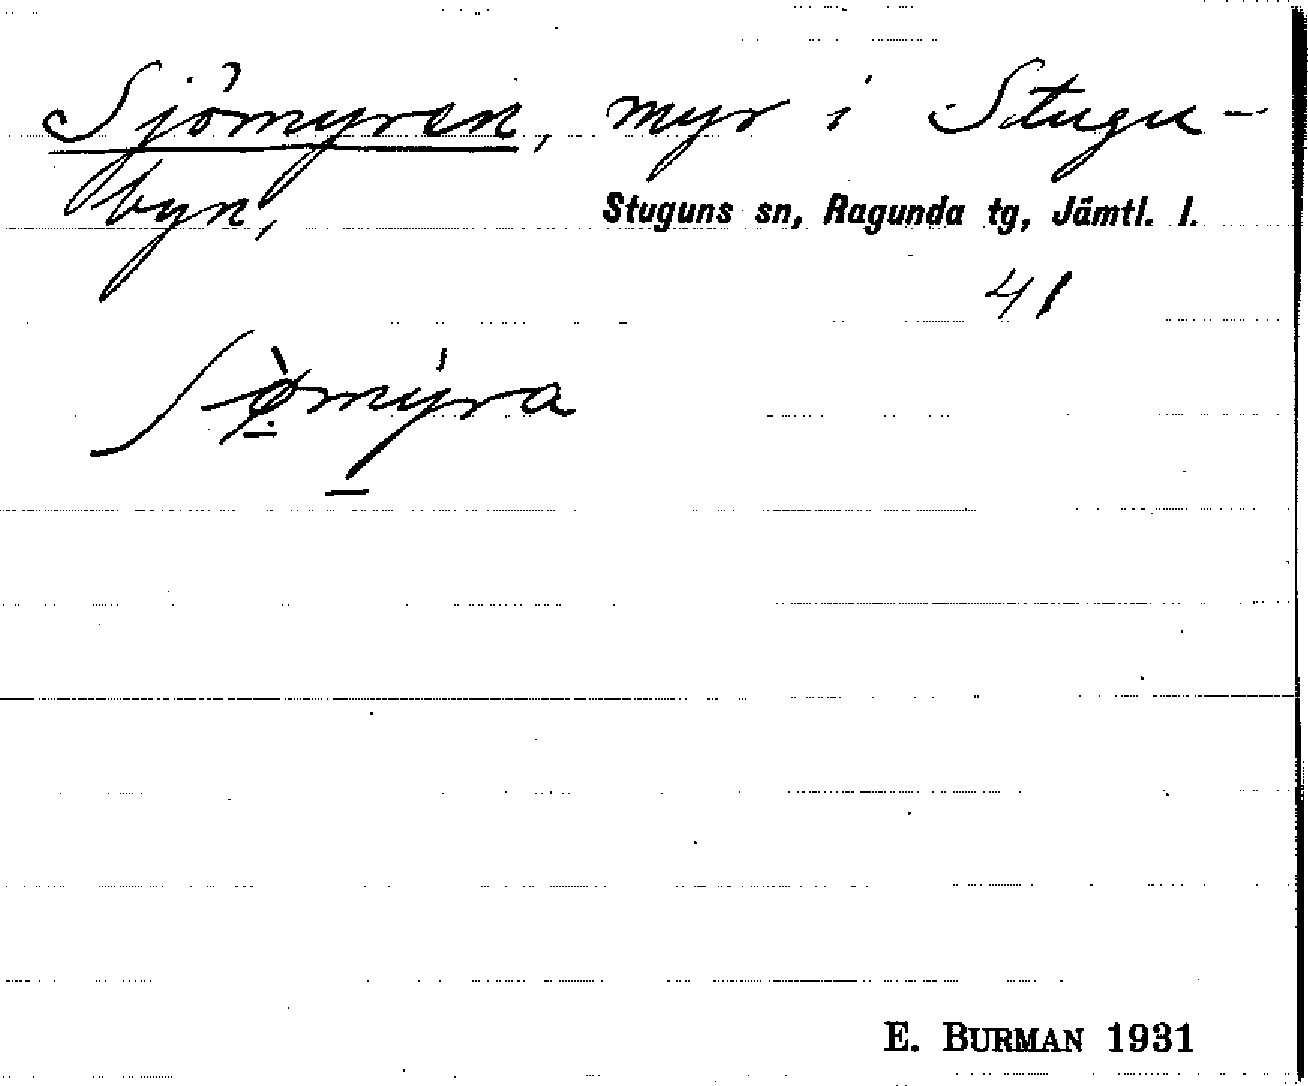 Sjömyren, myr i Stugu-
byn,
Stuguns sn, Ragunda tg, Jämtl. l.
41
ʃø̀mýra
E. BURMAN 1931